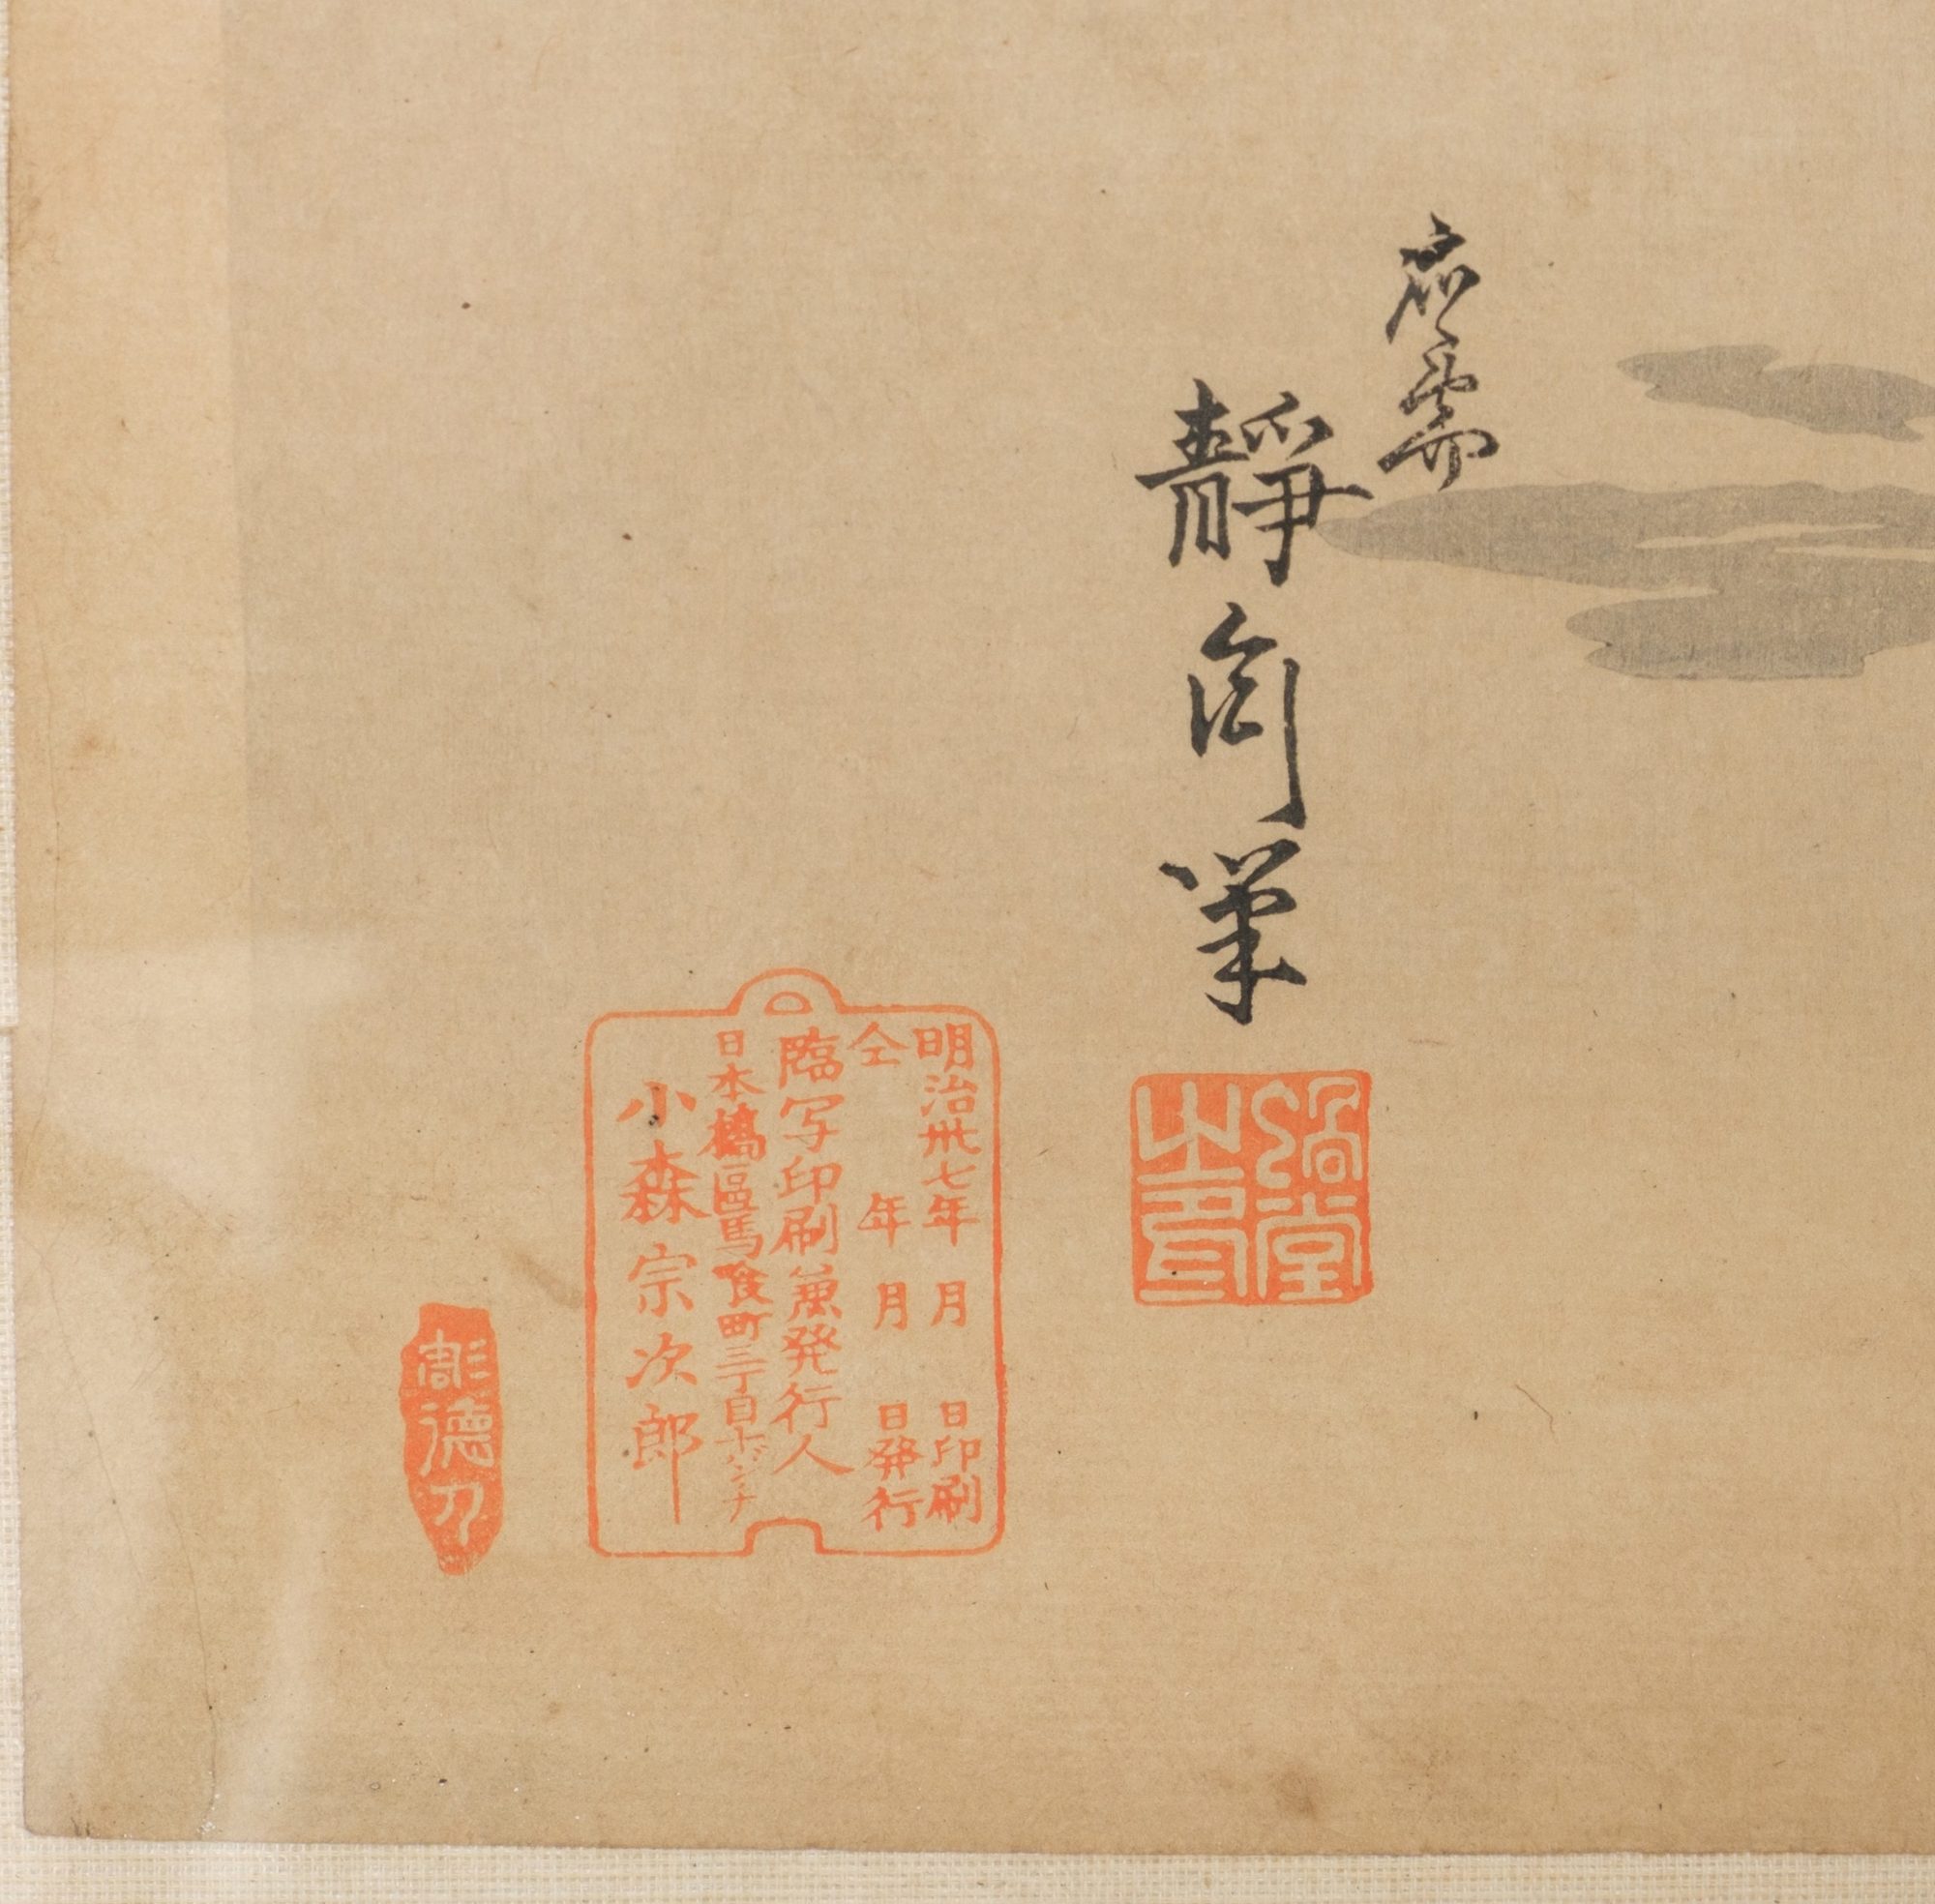 應需
靜旬筆
明治卅七年 月 日印刷
仝 年 月 日発行
臨写印刷兼発行人
日本橋區馬喰町三丁目
小森宗次郎
彫徳刀